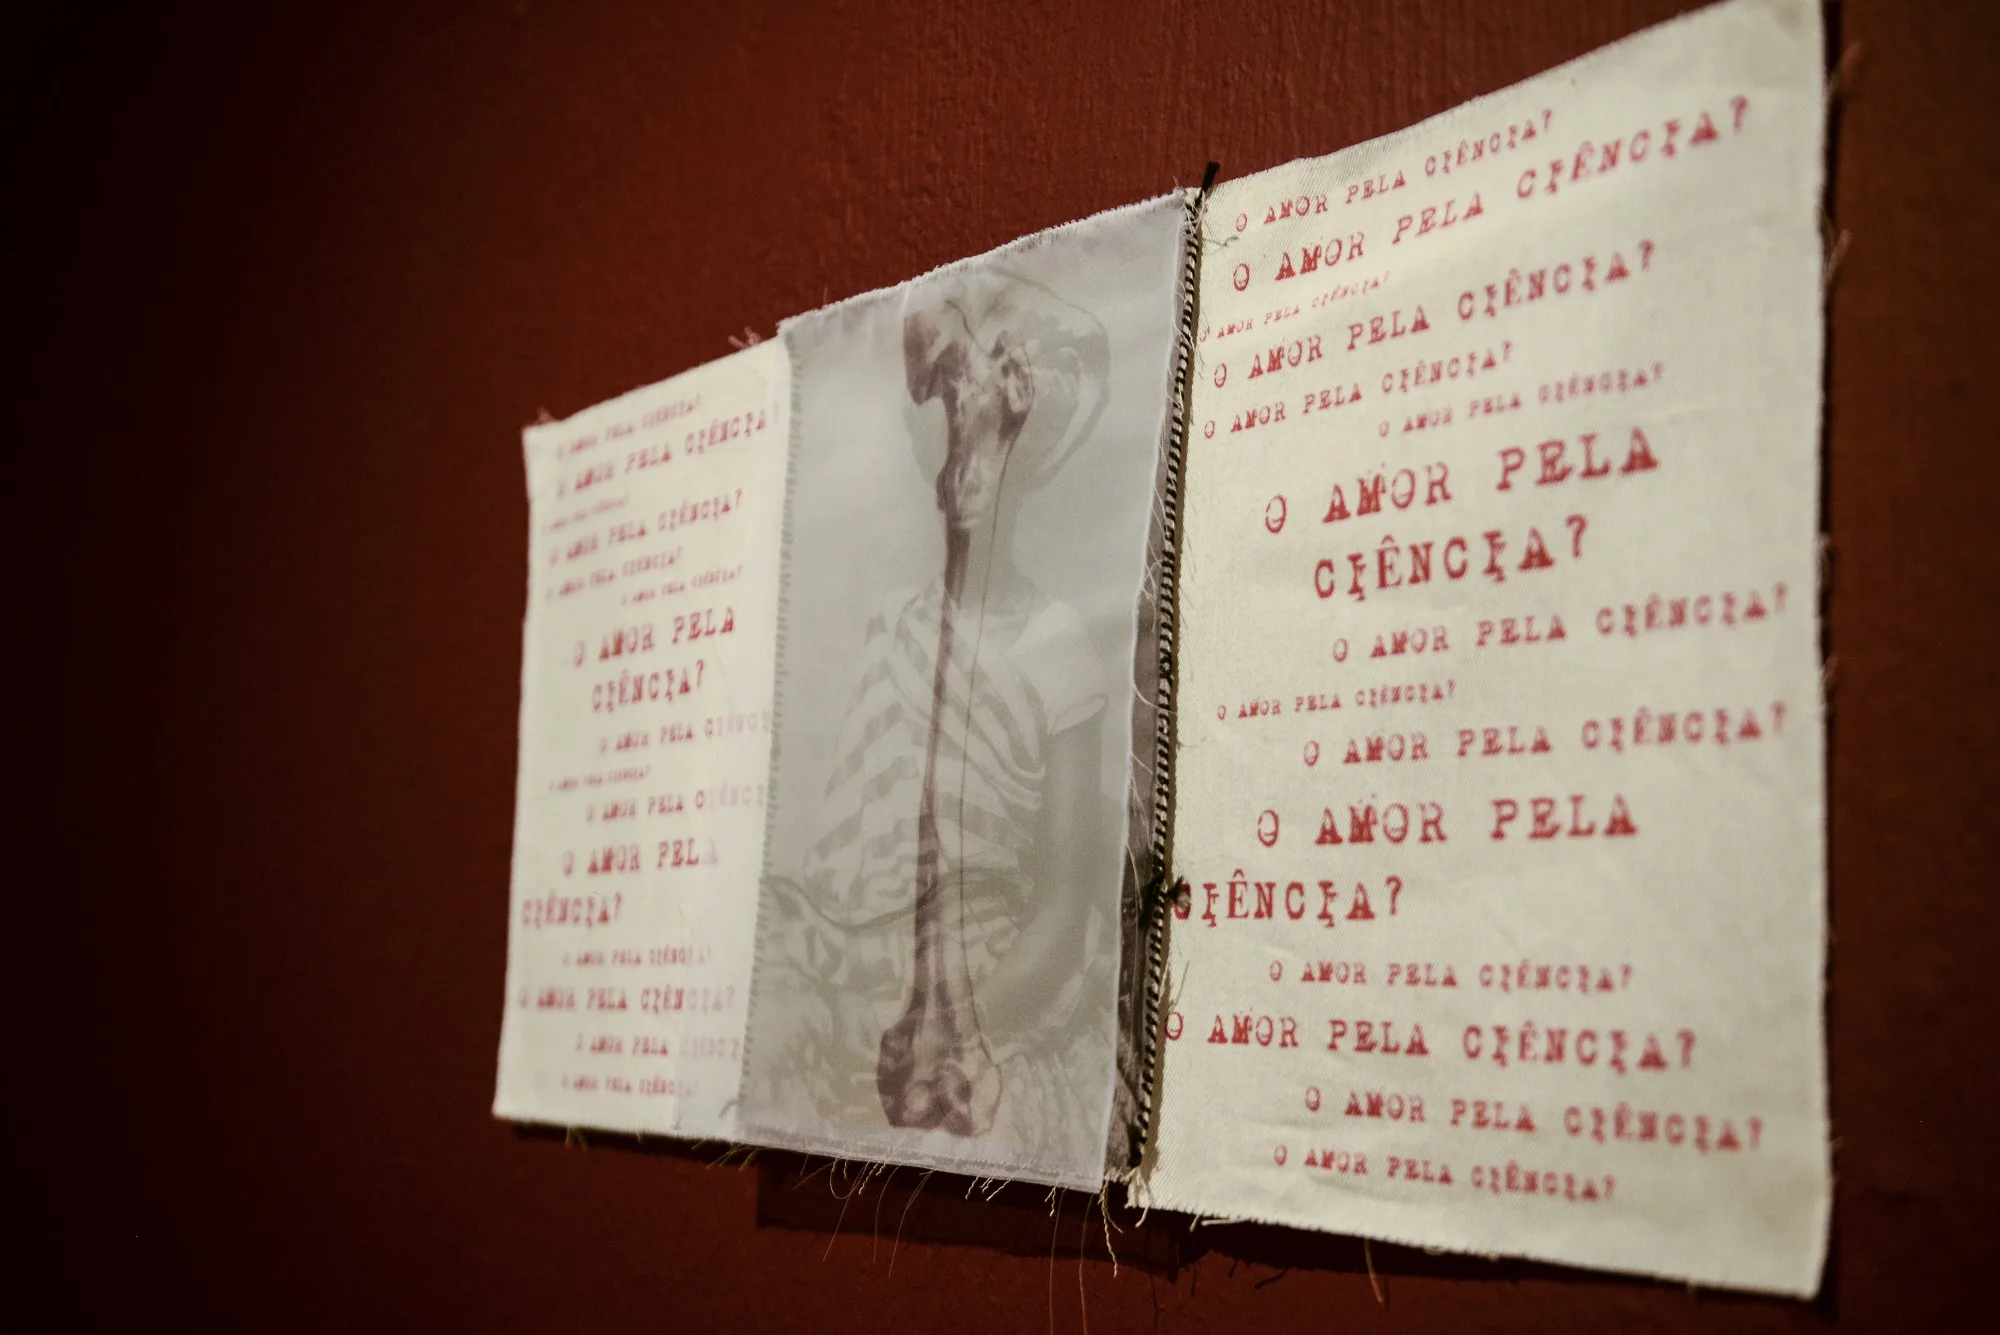 O AMOR PELA CIÊNCIA?
O AMOR PELA CIÊNCIA?
O AMOR PELA CIÊNCIA?
O AMOR PELA CIÊNCIA?
O AMOR PELA CIÊNCIA?
O AMOR PELA CIÊNCIA?
O AMOR PELA
CIÊNCIA?
O AMOR PELA CIÊNC
O AMOR PELA CIÊNCIA?
O AMOR PELA CIÊNCI
O AMOR PELA
CIÊNCIA?
O AMOR PELA CIÊNCIA?
O AMOR PELA CIÊNCIA?
O AMOR PELA CIÊNCI
O AMOR PELA CIÊNCIA?
O AMOR PELA CIÊNCIA?
O AMOR PELA CIÊNCIA?
O AMOR PELA CIÊNCIA?
O AMOR PELA CIÊNCIA?
O AMOR PELA CIÊNCIA?
O AMOR PELA CIÊNCIA?
O AMOR PELA
CIÊNCIA?
O AMOR PELA CIÊNCIA?
O AMOR PELA CIÊNCIA?
O AMOR PELA CIÊNCIA?
O AMOR PELA
CIÊNCIA?
O AMOR PELA CIÊNCIA?
O AMOR PELA CIÊNCIA?
O AMOR PELA CIÊNCIA?
O AMOR PELA CIÊNCIA?